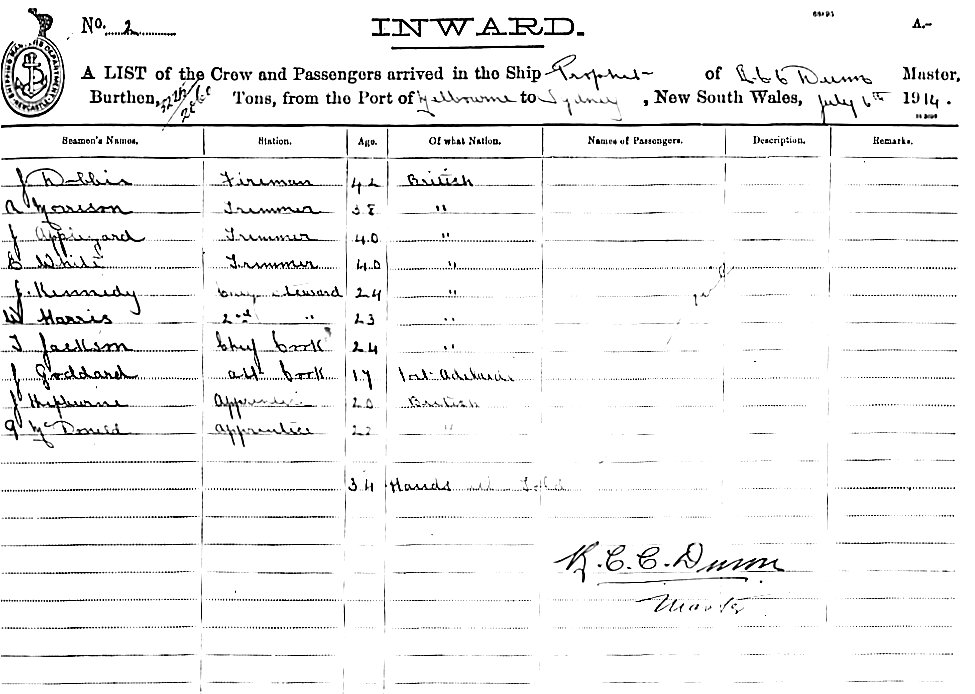 No. 2
INWARD.
A.-
A LIST of the Crew and Passengers arrived in the Ship Prophet of R C C Dunn Master,
Burthen, Tons, from the Port of Melbourne to Sydney, New South Wales, July 6th 1914.
Seamen's Names. Station. Age. Of what Nation. Names of Passengers. Description. Remarks.
J Dobbin Fireman 42 British
A Morrison Trimmer 38 "
J Appleyard Trimmer 40 "
B White Trimmer 40 "
J. Kennedy Chief Steward 24 "
W Harris 2nd " 23 "
T Jackson Chief Cook 24 "
J Goddard Asst Cook 17 Port Adelaide
J Hepburne Apprentice 20 British
G McDonald Apprentice 22 "
34 Hands all Told
R. C. C. Dunn
Master